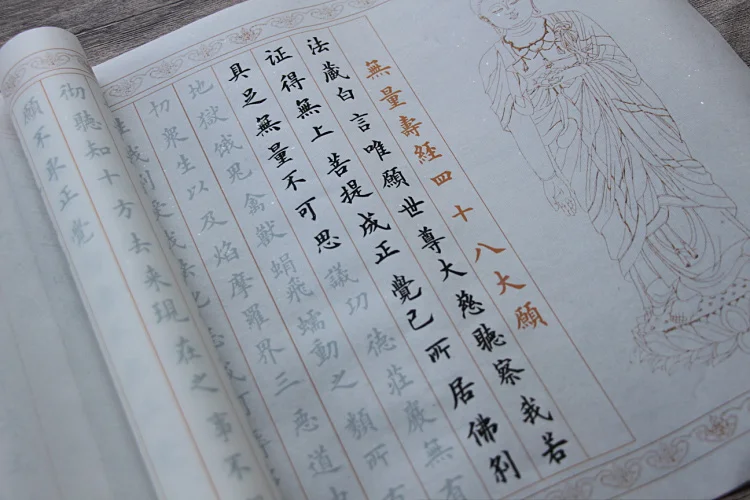 無量壽經四十八大願
法藏白言唯願世尊大慈聽察我若
证得無上菩提成正覺已所居佛刹
具足無量不可思議功德莊嚴無有
地獄饿鬼禽獸蜎飛蠕動之類所有
切眾生以及焰摩羅界三惡道中
生我刹受我法化
徹聽知十方去來現在之事不
願不取正覺